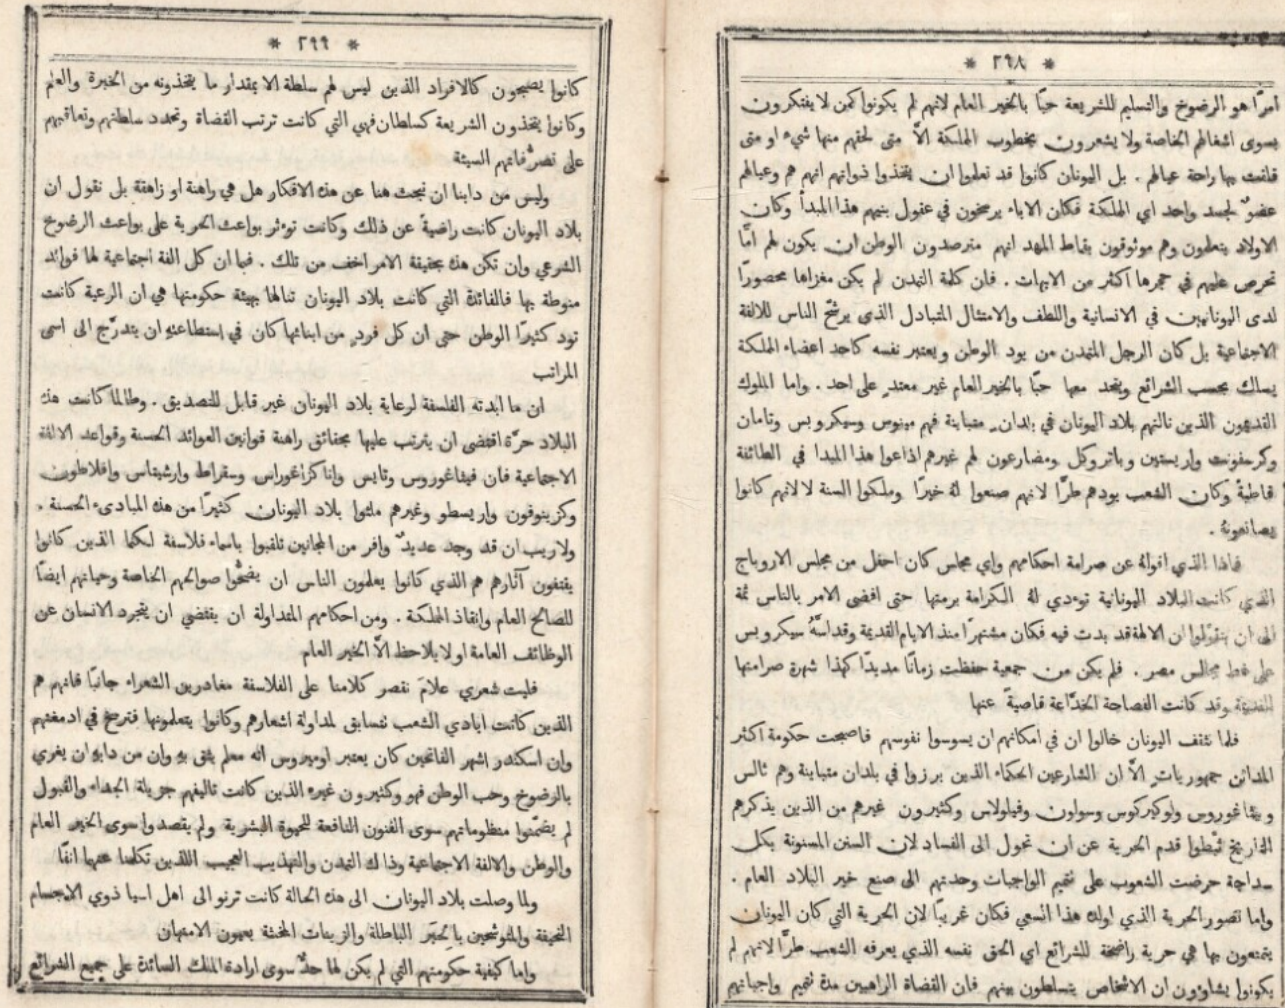 * ٢٩٨ *
امرًا هو الرضوخ والتسليم للشريعة حبًا بالخير العام لانهم لم يكونوا كمن لا يفتكرون
بسوى اشغالهم الخاصة ولا يشعرون بخطوب المملكة الاَّ متى لحقهم منها شيء او متى
قامت بها راحة عيالهم . بل اليونان كانوا قد تعلموا ان يتخذوا ذواتهم انهم هم وعيالهم
عضوٌ لجسد واحد اي المملكة فكان الاباء يرسخون في عقول بنيهم هذا المبدأ وكان
الاولاد يتعلمون وهم موثوقون بقاط المهد انهم مترصدون الوطن ان يكون لهم امًّا
تحرص عليهم في حجرها اكثر من الابهات . فان كلمة التمدن لم يكن مغزاها محصورًا
لدى اليونانيين في الانسانية واللطف والامتثال المتبادل الذي يرشح الناس للالفة
الاجتماعية بل كان الرجل المتمدن من يود الوطن ويعتبر نفسه كاحد اعضاء المملكة
يسلك بحسب الشرائع ويتحد معها حبًا بالخير العام غير معتدٍ على احد . واما الملوك
القديمون الذين نالتهم بلاد اليونان في بلدان متباينة فهم مينوس وسيكروبس وتامان
وكرسفونت واريستين وباتروكل ومضارعون لهم غيرهم اذاعوا هذا المبدا في الطائفة
قاطبةً وكان الشعب يودهم طرًّا لانهم صنعوا لهُ خيرًا وملكوا السنة لا لانهم كانوا
يصانعونهُ .
فماذا الذي اقولهُ عن صرامة احكامهم واي مجلس كان احفل من مجلس الاروباج
الذي كانت البلاد اليونانية تودي لهُ الكرامة برمتها حتى افضى الامر بالناس ثمة
الى ان يقولوا ان الالهة قد بدت فيه فكان مشتهرًا منذ الايام القديمة وقد اسَّهُ سيكروبس
على نمط مجالس مصر . فلم يكن من جمعية حفظت زمانًا مديدًا كهذا شهرة صرامتها
القديمة وقد كانت الفصاحة الخدَّاعة قاصيةً عنها
فلما تثقف اليونان خالوا ان في امكانهم ان يسوسوا نفوسهم فاصبحت حكومة اكثر
المدائن جمهورياتٍ الاَّ ان الشارعين الحكماء الذين برزوا في بلدان متباينة وهم ثالس
وبيثاغوروس ولوكيركوس وسولون وفيلولاس وكثيرون غيرهم من الذين يذكرهم
التاريخ ثبَّطوا قدم الحرية عن ان تحول الى الفساد لان السنن المسنونة بكل
سذاجة حرضت الشعوب على تتميم الواجبات وحدتهم الى صنع خير البلاد العام .
واما تصور الحرية الذي اولك هذا السعي فكان غريبًا لان الحرية التي كان اليونان
يتمتعون بها هي حرية راضخة للشرائع اي الحق نفسه الذي يعرفه الشعب طرًّا لانهم لم
يكونوا يشاؤون ان الاشخاص يتسلطون بينهم فان القضاة الراهبين مدة تتميم واجباتهم
* ٢٩٩ *
كانوا يصبحون كالافراد الذين ليس لهم سلطة الا بمقدار ما يتخذونه من الخبرة والعلم
وكانوا يتخذون الشريعة كسلطان فهي التي كانت ترتب القضاة وتحدد سلطتهم وتعاقبهم
على تصرُّفاتهم السيئة
وليس من دابنا ان نبحث هنا عن هذه الافكار هل هي راهنة او زاهقة بل نقول ان
بلاد اليونان كانت راضيةً عن ذلك وكانت توءثر بواعث الحرية على بواعث الرضوخ
الشرعي وان تكن هذه بحقيقة الامر اخف من تلك . فبما ان كل الفة اجتماعية لها فوائد
منوطة بها فالفائدة التي كانت بلاد اليونان تنالها بهيئة حكومتها هي ان الرعية كانت
تود كثيرًا الوطن حتى ان كل فردٍ من ابنائها كان في استطاعتهِ ان يتدرَّج الى اسمى
المراتب
ان ما ابدته الفلسفة لرعاية بلاد اليونان غير قابل للتصديق . وطالما كانت هذه
البلاد حرَّة اقتضى ان يترتب عليها بحقائق راهنة قوانين العوائد الحسنة وقواعد الالفة
الاجتماعية فان فيثاغوروس وثايس واناكزاغوراس وسقراط وارشيتاس وافلاطون
وكزينوفون واريسطو وغيرهم ملئوا بلاد اليونان كثيرًا من هذه المبادىء الحسنة .
ولاريب ان قد وجد عديدٌ وافر من المجانين تلقبوا باسماء فلاسفة لكنما الذين كانوا
يقتفون آثارهم هم الذي كانوا يعلمون الناس ان يضحُّوا صوالحهم الخاصة وحياتهم ايضًا
للصالح العام وانقاذ المملكة . ومن احكامهم المتداولة ان يقتضي ان يتجرد الانسان عن
الوظائف العامة او لا يلاحظ الاَّ الخير العام
فليت شعري علامَ نقصر كلامنا على الفلاسفة مغادرين الشعراء جانبًا فانهم هم
الذين كانت ايادي الشعب تتسابق لمداولة اشعارهم وكانوا يتعلمونها فترسخ في ادمغتهم
وان اسكندر اشهر الفاتحين كان يعتبر اوميروس انه معلم يثق بهِ وان من دابه ان يغري
بالرضوخ وحب الوطن فهو وكثيرون غيره الذين كانت تاليفهم جزيلة الجداء والقبول
لم يضمِّنوا منظوماتهم سوى الفنون النافعة للحيوة البشرية ولم يقصدوا سوى الخير العام
والوطن والالفة الاجتماعية وذاك التمدن والتهذيب العجيب اللذين تكلمنا عنهما انفًا
ولما وصلت بلاد اليونان الى هذه الحالة كانت ترنو الى اهل اسيا ذوي الاجسام
النحيفة والمتوشحين بالحبَر الباطلة والزينات المخنثة بعيون الامتهان
واما كيفية حكومتهم التي لم يكن لها حدٌّ سوى ارادة الملك السائدة على جميع الشرائع